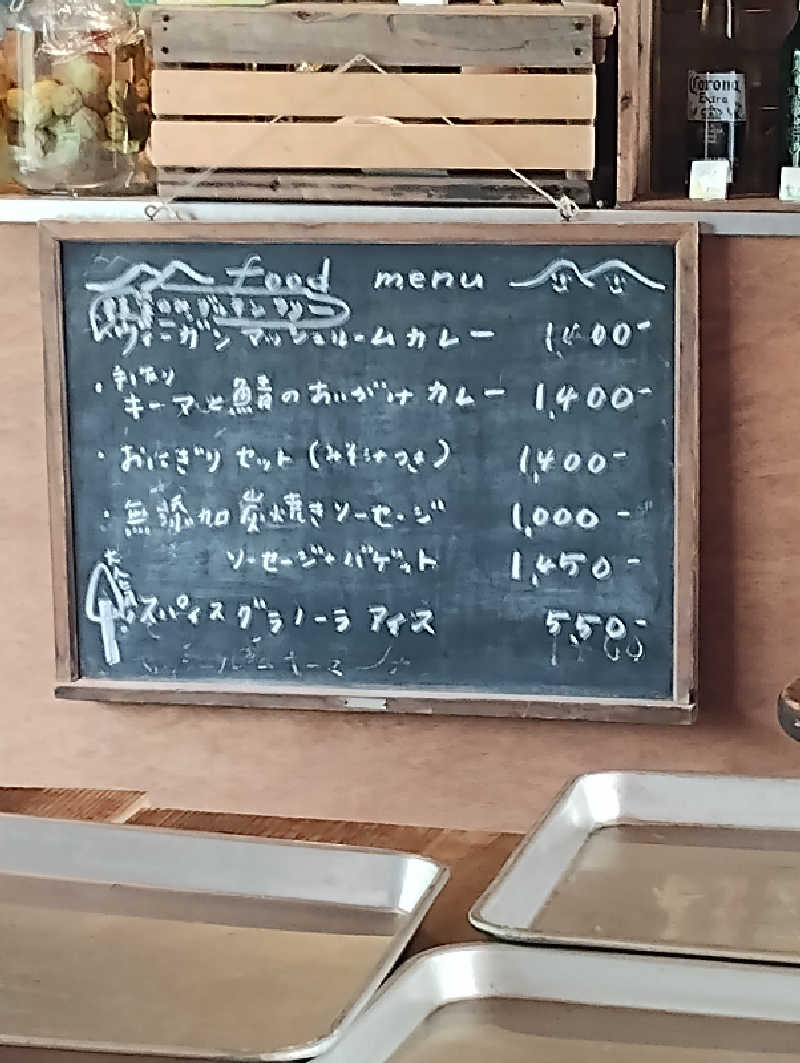 Corona
Extra
food menu
ヴィーガンマッシュルームカレー 1,400-
・手作り
キーマと鯖のあいがけカレー 1,400-
・おにぎりセット(みそ汁つき) 1,400-
・無添加炭焼きソーセージ 1,000-
ソーセージ+バゲット 1,450-
スパイスグラノーラアイス 550-